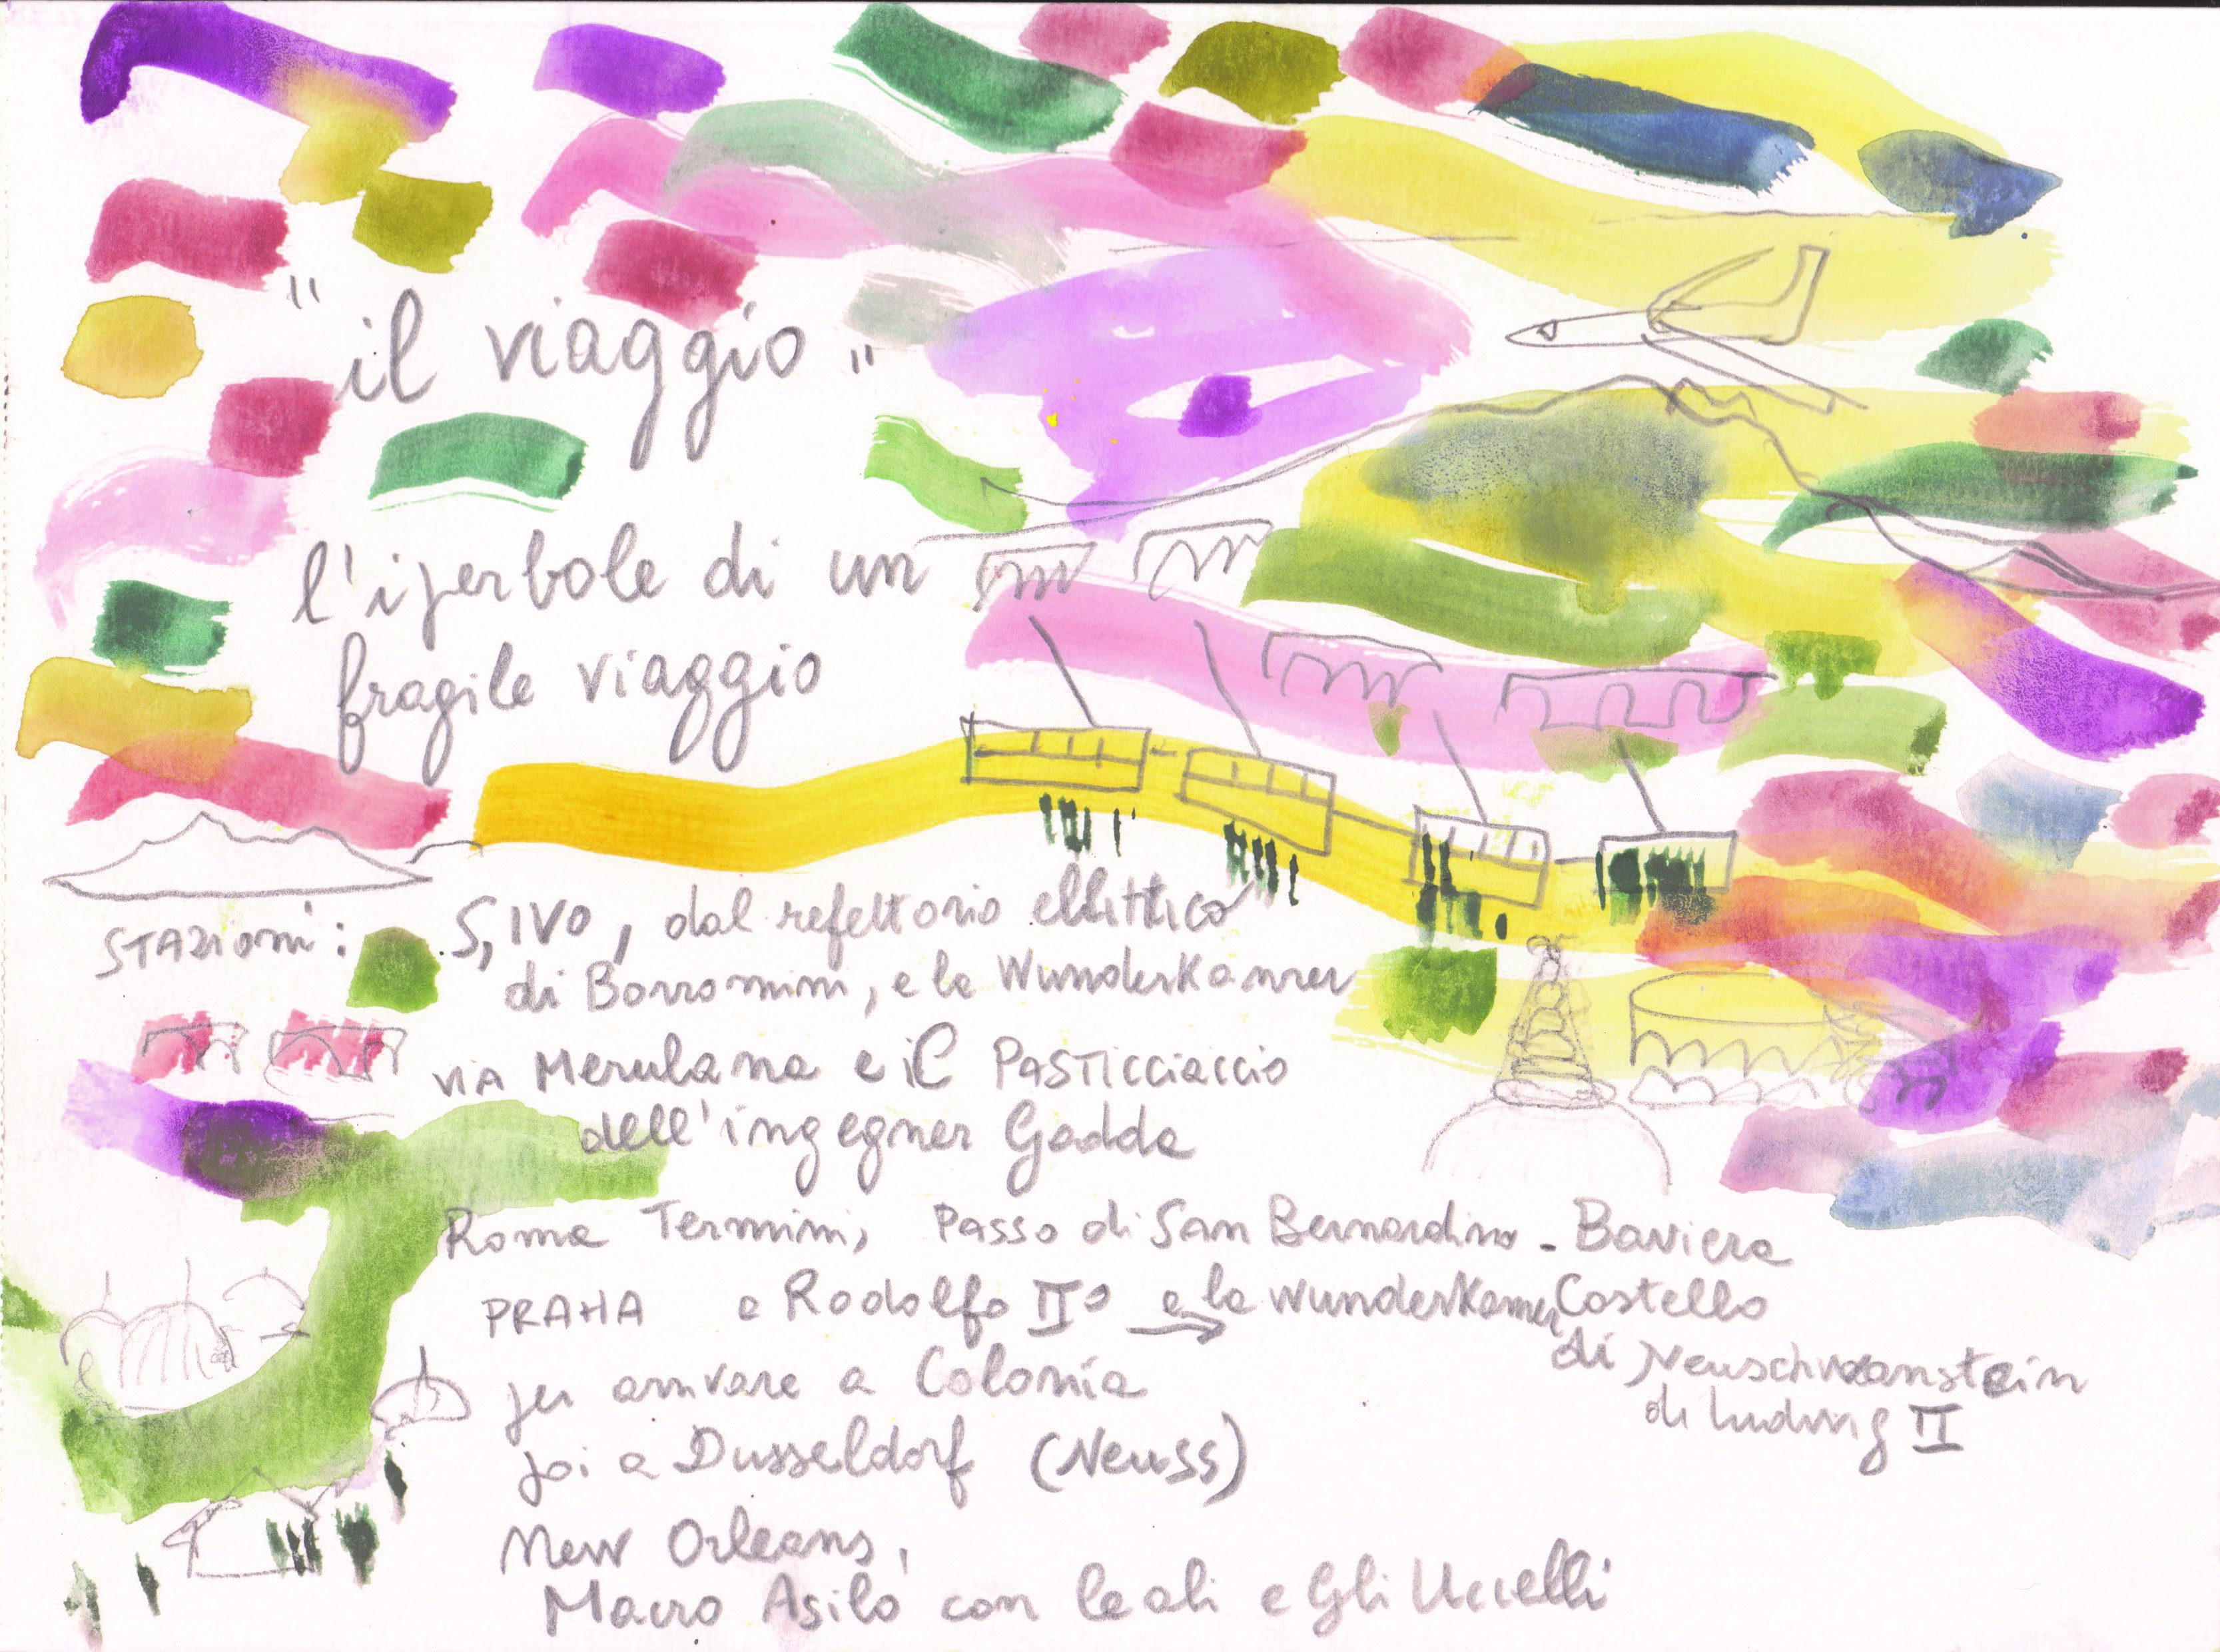 "il viaggio"
l'iperbole di un
fragile viaggio
STAZIONI: S, IVO, dal refettorio ellittico
di Borromini, e la Wunderkammer
VIA Merulana e il PASTICCIACCIO
dell'ingegner Gadda
Roma Termini, Passo di San Bernardino - Baviera
PRAHA e Rodolfo II° e la Wunderkamer Castello
di Neuschwanstein
di Ludwig II
per arrivare a Colonia
poi a Dusseldorf (Neuss)
New Orleans,
Macro Asilo con le ali e Gli Uccelli